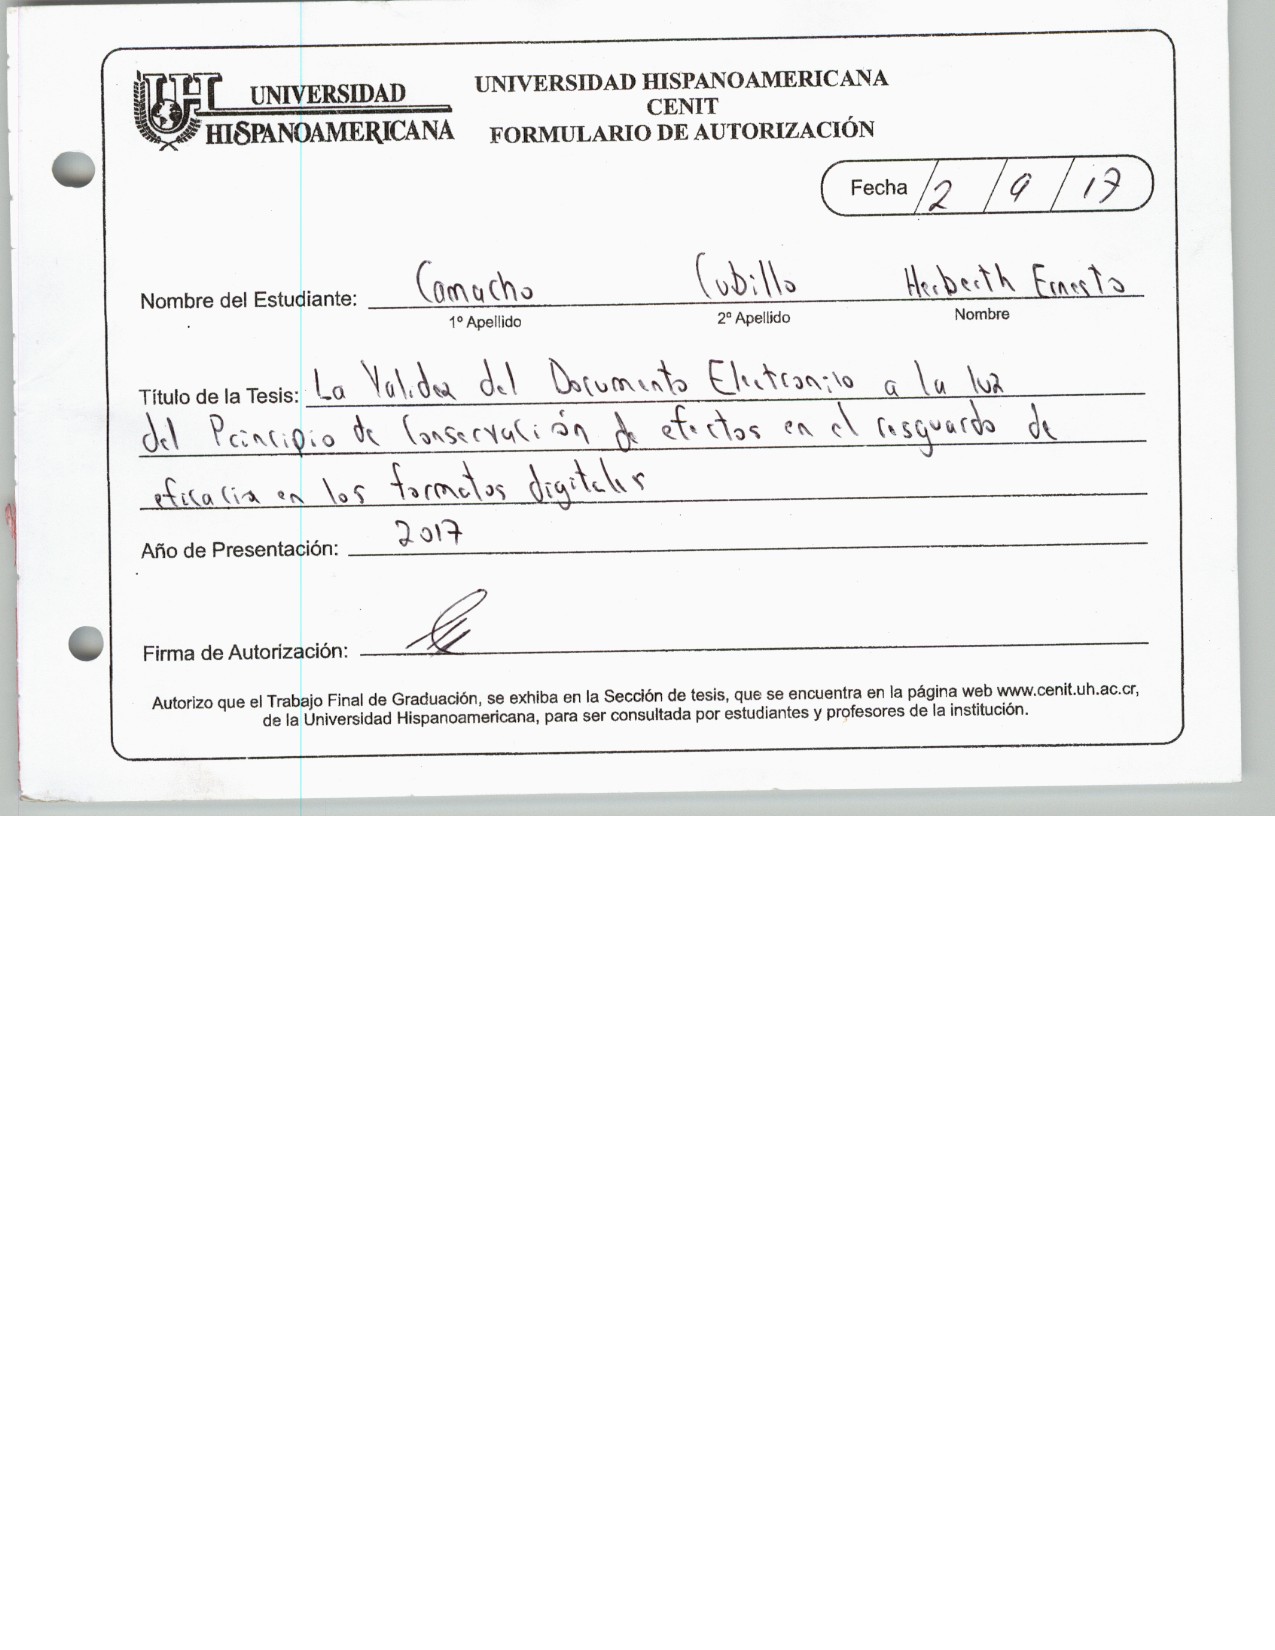 UNIVERSIDAD
HISPANOAMERICANA
UNIVERSIDAD HISPANOAMERICANA
CENIT
FORMULARIO DE AUTORIZACIÓN
Fecha / 2 / 9 / 17
Nombre del Estudiante: Camacho Cubillo Herberth Ernesto
1º Apellido 2º Apellido Nombre
Título de la Tesis: La Validez del Documento Electronico a la luz
del Principio de Conservación de efectos en el resguardo de
eficacia en los formatos digitales
Año de Presentación: 2017
Firma de Autorización:
Autorizo que el Trabajo Final de Graduación, se exhiba en la Sección de tesis, que se encuentra en la página web www.cenit.uh.ac.cr,
de la Universidad Hispanoamericana, para ser consultada por estudiantes y profesores de la institución.